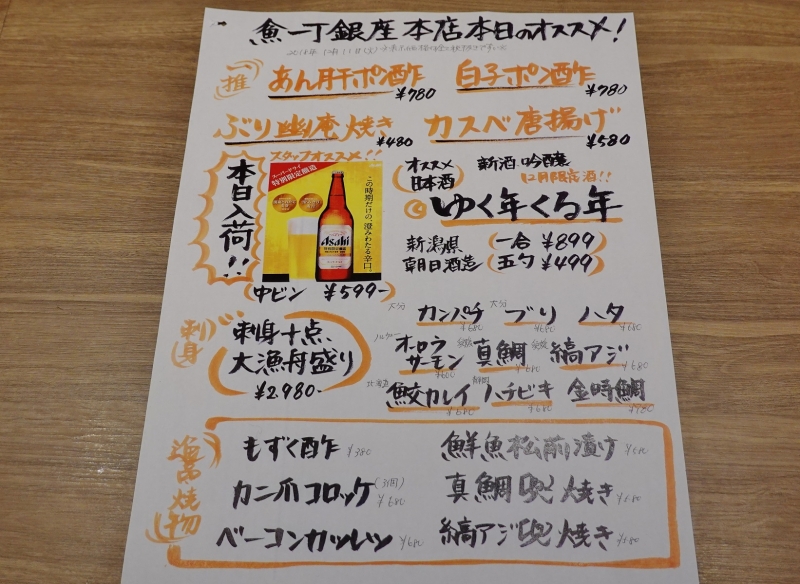 魚一丁銀座本店本日のオススメ!
一推
あん肝ポン酢 ¥780
白子ポン酢 ¥780
ぶり幽庵焼き ¥480
カスベ唐揚げ ¥580
本日入荷!!
スタッフオススメ!!
スーパードライ
特別限定醸造
この時期だけの、澄みわたる辛口。
Asahi
中ビン ¥599-
オススメ日本酒
新酒 吟醸
12月限定酒!!
ゆく年くる年
新潟県
朝日酒造
一合 ¥899
五勺 ¥499
刺身
刺身十点、
大漁舟盛り
¥2,980-
大分 カンパチ ¥680
大分 ブリ ¥680
ハタ ¥680
ノルウェー オーロラサーモン ¥680
真鯛 ¥680
縞アジ ¥680
北海道 鮫カレイ ¥680
静岡 ハチビキ ¥680
金時鯛 ¥780
焼物
もずく酢 ¥380
カニ爪コロッケ (3個) ¥680
ベーコンカツレツ ¥680
鮮魚松前漬け
真鯛兜焼き
縞アジ兜焼き